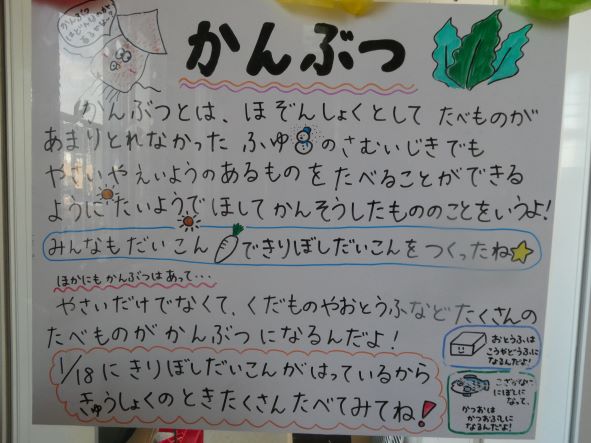 かんぶつ
かんぶつとは、ほぞんしょくとして たべものが
あまりとれなかった ふゆのさむいじきでも
やさいやえいようのあるものを たべることができる
ように たいようで ほして かんそうしたもののことをいうよ!
みんなもだいこんできりぼしだいこんをつくったね
ほかにもかんぶつはあって…
やさいだけでなくて、くだものやおとうふなどたくさんの
たべものが かんぶつになるんだよ!
おとうふは
こうやどうふに
なるんだよ!
1/18に きりぼしだいこんがはっているから
きゅうしょくのときたくさんたべてみてね!
こざかなは
にぼしに
なって、
かつおは
かつおぶしに
なるんだよ!